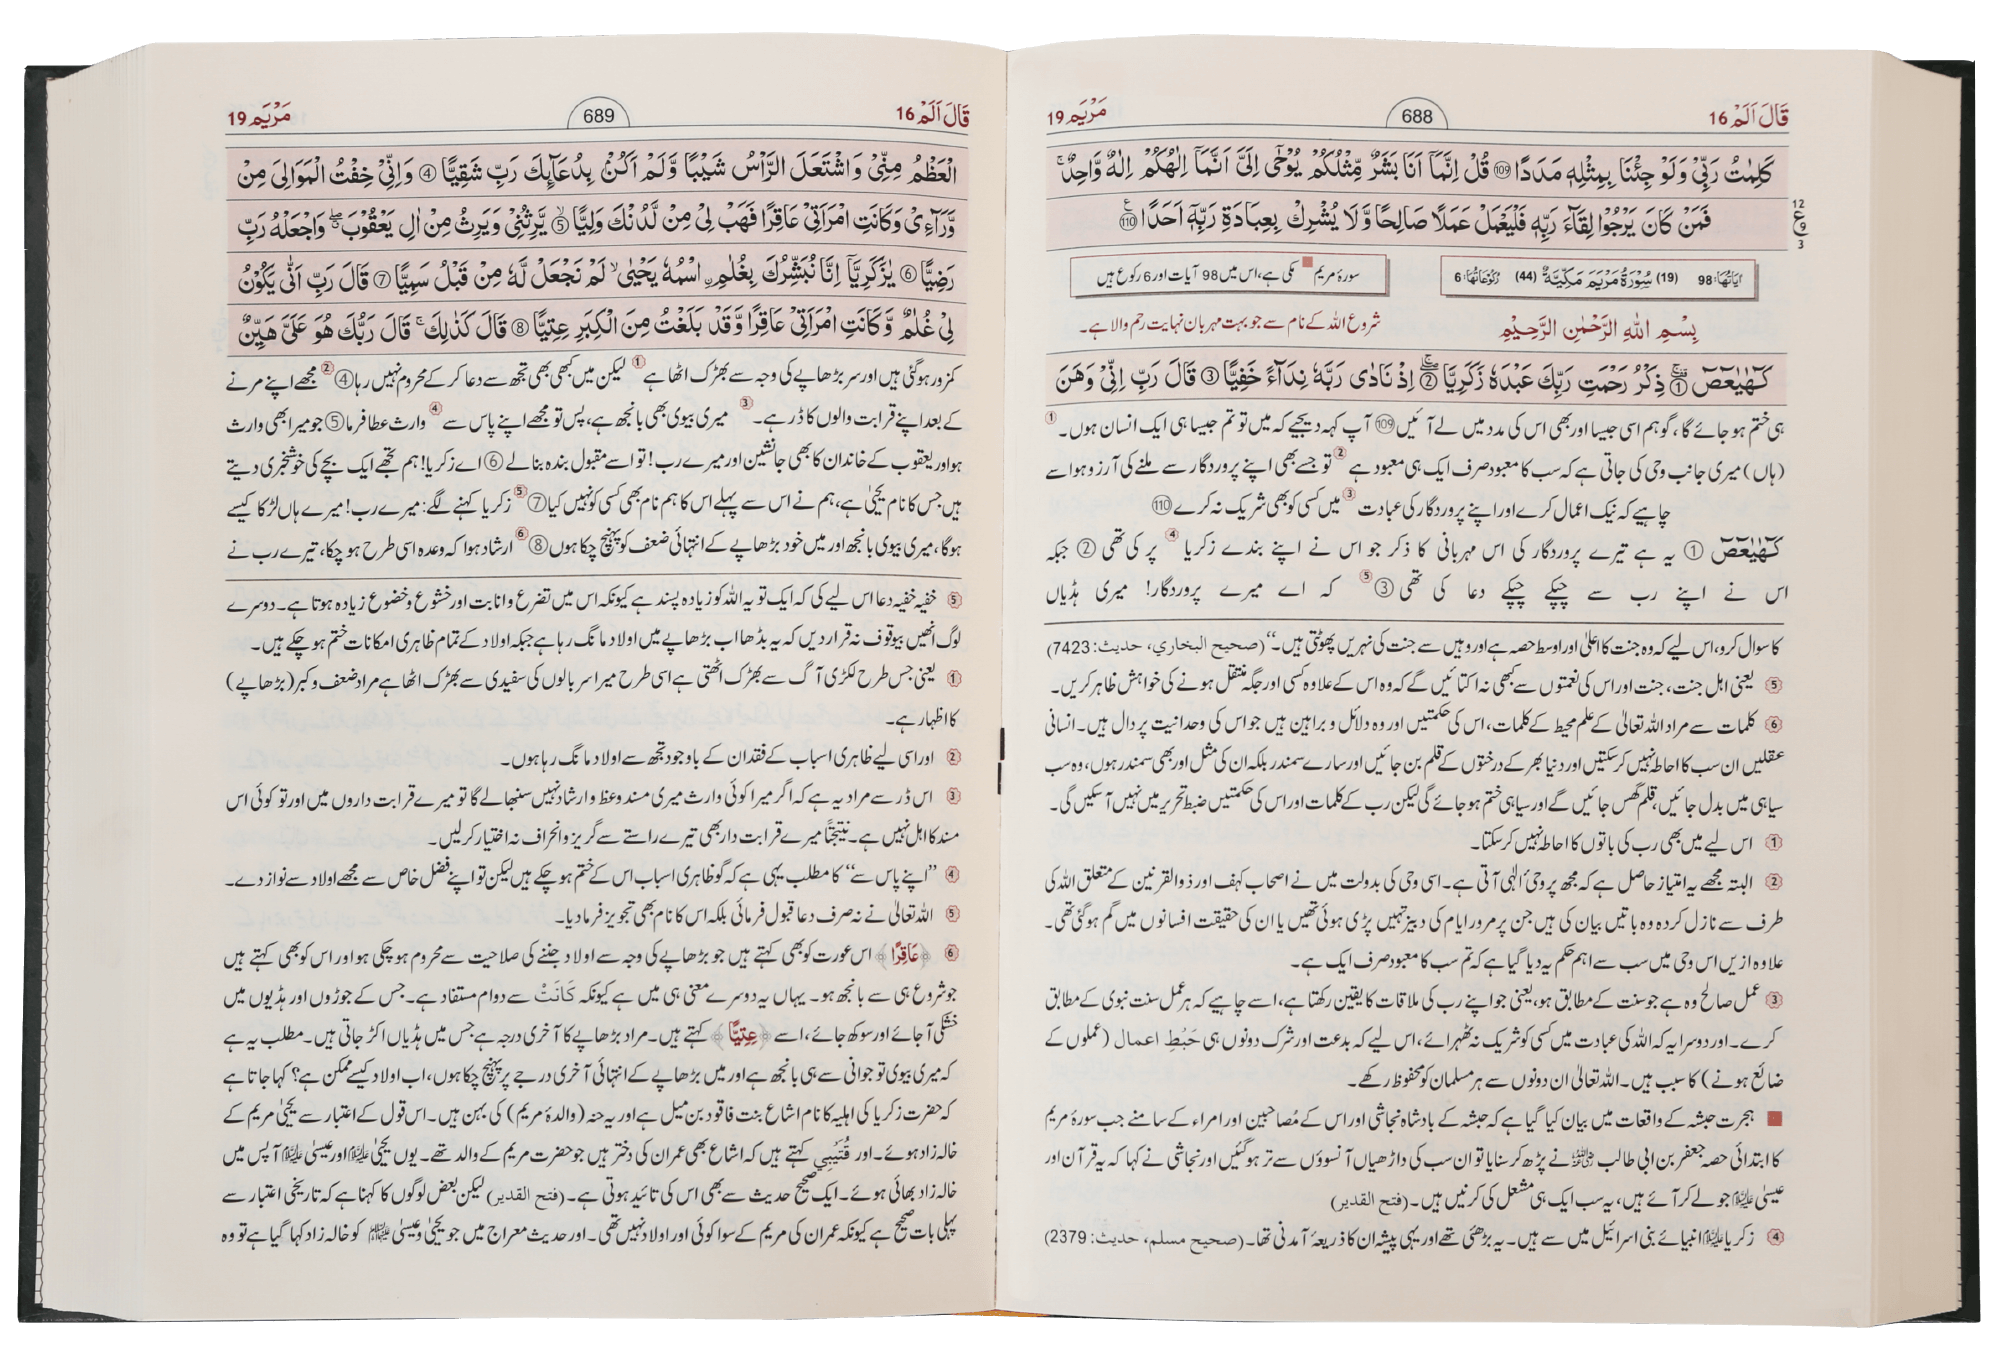 قَالَ اَلَمْ 16
688
مَرْيَم 19
كَلِمٰتُ رَبِّيْ وَلَوْ جِئْنَا بِمِثْلِهٖ مَدَدًا ﴿109﴾ قُلْ اِنَّمَآ اَنَا بَشَرٌ مِّثْلُكُمْ يُوْحٰٓى اِلَيَّ اَنَّمَآ اِلٰهُكُمْ اِلٰهٌ وَّاحِدٌ ۚ
فَمَنْ كَانَ يَرْجُوْا لِقَآءَ رَبِّهٖ فَلْيَعْمَلْ عَمَلًا صَالِحًا وَّلَا يُشْرِكْ بِعِبَادَةِ رَبِّهٖٓ اَحَدًا ﴿110﴾
12 ع 9 3
اٰیَاتُهَا: 98 (19) سُوْرَةُ مَرْيَمَ مَكِّيَّةٌ (44) رُكُوْعَاتُهَا: 6
سورۂ مریم مکی ہے، اس میں 98 آیات اور 6 رکوع ہیں
بِسْمِ اللّٰهِ الرَّحْمٰنِ الرَّحِيْمِ
شروع اللہ کے نام سے جو بہت مہربان نہایت رحم والا ہے۔
كٓهٰيٰعٓصٓ ﴿1﴾ ذِكْرُ رَحْمَتِ رَبِّكَ عَبْدَهٗ زَكَرِيَّا ﴿2﴾ اِذْ نَادٰى رَبَّهٗ نِدَآءً خَفِيًّا ﴿3﴾ قَالَ رَبِّ اِنِّيْ وَهَنَ
ہی ختم ہو جائے گا، گو ہم اسی جیسا اور بھی اس کی مدد میں لے آئیں (109) آپ کہہ دیجیے کہ میں تو تم جیسا ہی ایک انسان ہوں۔ 1
(ہاں) میری جانب وحی کی جاتی ہے کہ سب کا معبود صرف ایک ہی معبود ہے 2 تو جسے بھی اپنے پروردگار سے ملنے کی آرزو ہو اسے
چاہیے کہ نیک اعمال کرے اور اپنے پروردگار کی عبادت 3 میں کسی کو بھی شریک نہ کرے (110)
كٓهٰيٰعٓصٓ (1) یہ ہے تیرے پروردگار کی اس مہربانی کا ذکر جو اس نے اپنے بندے زکریا 4 پر کی تھی (2) جبکہ
اس نے اپنے رب سے چپکے چپکے دعا کی تھی (3) 5 کہ اے میرے پروردگار! میری ہڈیاں
کا سوال کرو، اس لیے کہ وہ جنت کا اعلیٰ اور اوسط حصہ ہے اور وہیں سے جنت کی نہریں پھوٹتی ہیں۔“ (صحیح البخاري، حدیث: 7423)
5 یعنی اہل جنت، جنت اور اس کی نعمتوں سے کبھی نہ اکتائیں گے کہ وہ اس کے علاوہ کسی اور جگہ منتقل ہونے کی خواہش ظاہر کریں۔
6 کلمات سے مراد اللہ تعالیٰ کے علم محیط کے کلمات، اس کی حکمتیں اور وہ دلائل و براہین ہیں جو اس کی وحدانیت پر دال ہیں۔ انسانی
عقلیں ان سب کا احاطہ نہیں کر سکتیں اور دنیا بھر کے درختوں کے قلم بن جائیں اور سارے سمندر بلکہ ان کی مثل اور بھی سمندر ہوں، وہ سب
سیاہی میں بدل جائیں، قلم گھس جائیں گے اور سیاہی ختم ہو جائے گی لیکن رب کے کلمات اور اس کی حکمتیں ضبط تحریر میں نہیں آ سکیں گی۔
1 اس لیے میں بھی رب کی باتوں کا احاطہ نہیں کر سکتا۔
2 البتہ مجھے یہ امتیاز حاصل ہے کہ مجھ پر وحیٔ الٰہی آتی ہے۔ اسی وحی کی بدولت میں نے اصحاب کہف اور ذوالقرنین کے متعلق اللہ کی
طرف سے نازل کردہ وہ باتیں بیان کی ہیں جن پر مرور ایام کی دبیز تہیں پڑی ہوئی تھیں یا ان کی حقیقت افسانوں میں گم ہو گئی تھی۔
علاوہ ازیں اس وحی میں سب سے اہم حکم یہ دیا گیا ہے کہ تم سب کا معبود صرف ایک ہے۔
3 عمل صالح وہ ہے جو سنت کے مطابق ہو، یعنی جو اپنے رب کی ملاقات کا یقین رکھتا ہے، اسے چاہیے کہ ہر عمل سنت نبوی کے مطابق
کرے۔ اور دوسرا یہ کہ اللہ کی عبادت میں کسی کو شریک نہ ٹھہرائے، اس لیے کہ بدعت اور شرک دونوں ہی حَبْطِ اعمال (عملوں کے
ضائع ہونے) کا سبب ہیں۔ اللہ تعالیٰ ان دونوں سے ہر مسلمان کو محفوظ رکھے۔
ہجرت حبشہ کے واقعات میں بیان کیا گیا ہے کہ حبشہ کے بادشاہ نجاشی اور اس کے مُصاحبین اور امراء کے سامنے جب سورۂ مریم
کا ابتدائی حصہ جعفر بن ابی طالب ؓ نے پڑھ کر سنایا تو ان سب کی داڑھیاں آنسوؤں سے تر ہو گئیں اور نجاشی نے کہا کہ یہ قرآن اور
عیسیٰ علیہ السلام جو لے کر آئے ہیں، یہ سب ایک ہی مشعل کی کرنیں ہیں۔ (فتح القدیر)
4 زکریا علیہ السلام انبیائے بنی اسرائیل میں سے ہیں۔ یہ بڑھئی تھے اور یہی پیشہ ان کا ذریعۂ آمدنی تھا۔ (صحیح مسلم، حدیث: 2379)
قَالَ اَلَمْ 16
689
مَرْيَم 19
الْعَظْمُ مِنِّيْ وَاشْتَعَلَ الرَّاْسُ شَيْبًا وَّلَمْ اَكُنْۢ بِدُعَآىِٕكَ رَبِّ شَقِيًّا ﴿4﴾ وَاِنِّيْ خِفْتُ الْمَوَالِيَ مِنْ
وَّرَآءِيْ وَكَانَتِ امْرَاَتِيْ عَاقِرًا فَهَبْ لِيْ مِنْ لَّدُنْكَ وَلِيًّا ﴿5﴾ يَّرِثُنِيْ وَيَرِثُ مِنْ اٰلِ يَعْقُوْبَ ۖ وَاجْعَلْهُ رَبِّ
رَضِيًّا ﴿6﴾ يٰزَكَرِيَّآ اِنَّا نُبَشِّرُكَ بِغُلٰمِ ِۨاسْمُهٗ يَحْيٰى ۙ لَمْ نَجْعَلْ لَّهٗ مِنْ قَبْلُ سَمِيًّا ﴿7﴾ قَالَ رَبِّ اَنّٰى يَكُوْنُ
لِيْ غُلٰمٌ وَّكَانَتِ امْرَاَتِيْ عَاقِرًا وَّقَدْ بَلَغْتُ مِنَ الْكِبَرِ عِتِيًّا ﴿8﴾ قَالَ كَذٰلِكَ ۚ قَالَ رَبُّكَ هُوَ عَلَيَّ هَيِّنٌ
کمزور ہو گئی ہیں اور سر بڑھاپے کی وجہ سے بھڑک اٹھا ہے 1 لیکن میں کبھی بھی تجھ سے دعا کر کے محروم نہیں رہا (4) 2 مجھے اپنے مرنے
کے بعد اپنے قرابت والوں کا ڈر ہے۔ 3 میری بیوی بھی بانجھ ہے، پس تو مجھے اپنے پاس سے 4 وارث عطا فرما (5) جو میرا بھی وارث
ہو اور یعقوب کے خاندان کا بھی جانشین اور میرے رب! تو اسے مقبول بندہ بنا لے (6) اے زکریا! ہم تجھے ایک بچے کی خوشخبری دیتے
ہیں جس کا نام یحییٰ ہے، ہم نے اس سے پہلے اس کا ہم نام بھی کسی کو نہیں کیا (7) 5 زکریا کہنے لگے: میرے رب! میرے ہاں لڑکا کیسے
ہوگا، میری بیوی بانجھ اور میں خود بڑھاپے کے انتہائی ضعف کو پہنچ چکا ہوں (8) 6 ارشاد ہوا کہ وعدہ اسی طرح ہو چکا، تیرے رب نے
5 خفیہ خفیہ دعا اس لیے کی کہ ایک تو یہ اللہ کو زیادہ پسند ہے کیونکہ اس میں تضرع و انابت اور خشوع و خضوع زیادہ ہوتا ہے۔ دوسرے
لوگ انھیں بیوقوف نہ قرار دیں کہ یہ بڈھا اب بڑھاپے میں اولاد مانگ رہا ہے جبکہ اولاد کے تمام ظاہری امکانات ختم ہو چکے ہیں۔
1 یعنی جس طرح لکڑی آگ سے بھڑک اٹھتی ہے اسی طرح میرا سر بالوں کی سفیدی سے بھڑک اٹھا ہے مراد ضعف و کبر (بڑھاپے)
کا اظہار ہے۔
2 اور اسی لیے ظاہری اسباب کے فقدان کے باوجود تجھ سے اولاد مانگ رہا ہوں۔
3 اس ڈر سے مراد یہ ہے کہ اگر میرا کوئی وارث میری مسند وعظ و ارشاد نہیں سنبھالے گا تو میرے قرابت داروں میں اور تو کوئی اس
مسند کا اہل نہیں ہے۔ نتیجتاً میرے قرابت دار بھی تیرے راستے سے گریز و انحراف نہ اختیار کر لیں۔
4 ”اپنے پاس سے“ کا مطلب یہی ہے کہ گو ظاہری اسباب اس کے ختم ہو چکے ہیں لیکن تو اپنے فضل خاص سے مجھے اولاد سے نواز دے۔
5 اللہ تعالیٰ نے نہ صرف دعا قبول فرمائی بلکہ اس کا نام بھی تجویز فرما دیا۔
6 ﴿عَاقِرًا﴾ اس عورت کو بھی کہتے ہیں جو بڑھاپے کی وجہ سے اولاد جننے کی صلاحیت سے محروم ہو چکی ہو اور اس کو بھی کہتے ہیں
جو شروع ہی سے بانجھ ہو۔ یہاں یہ دوسرے معنی ہی میں ہے کیونکہ كَانَتْ سے دوام مستفاد ہے۔ جس کے جوڑوں اور ہڈیوں میں
خشکی آ جائے اور سوکھ جائے، اسے ﴿عِتِيًّا﴾ کہتے ہیں۔ مراد بڑھاپے کا آخری درجہ ہے جس میں ہڈیاں اکڑ جاتی ہیں۔ مطلب یہ ہے
کہ میری بیوی تو جوانی سے ہی بانجھ ہے اور میں بڑھاپے کے انتہائی آخری درجے پر پہنچ چکا ہوں، اب اولاد کیسے ممکن ہے؟ کہا جاتا ہے
کہ حضرت زکریا کی اہلیہ کا نام اشاع بنت فاقود بن میل ہے اور یہ حنہ (والدۂ مریم) کی بہن ہیں۔ اس قول کے اعتبار سے یحییٰ مریم کے
خالہ زاد ہوئے۔ اور قُتَيْبِي کہتے ہیں کہ اشاع بھی عمران کی دختر ہیں جو حضرت مریم کے والد تھے۔ یوں یحییٰ علیہ السلام اور عیسیٰ علیہ السلام آپس میں
خالہ زاد بھائی ہوئے۔ ایک صحیح حدیث سے بھی اس کی تائید ہوتی ہے۔ (فتح القدیر) لیکن بعض لوگوں کا کہنا ہے کہ تاریخی اعتبار سے
پہلی بات صحیح ہے کیونکہ عمران کی مریم کے سوا کوئی اور اولاد نہیں تھی۔ اور حدیث معراج میں جو یحییٰ و عیسیٰ علیہما السلام کو خالہ زاد کہا گیا ہے تو وہ